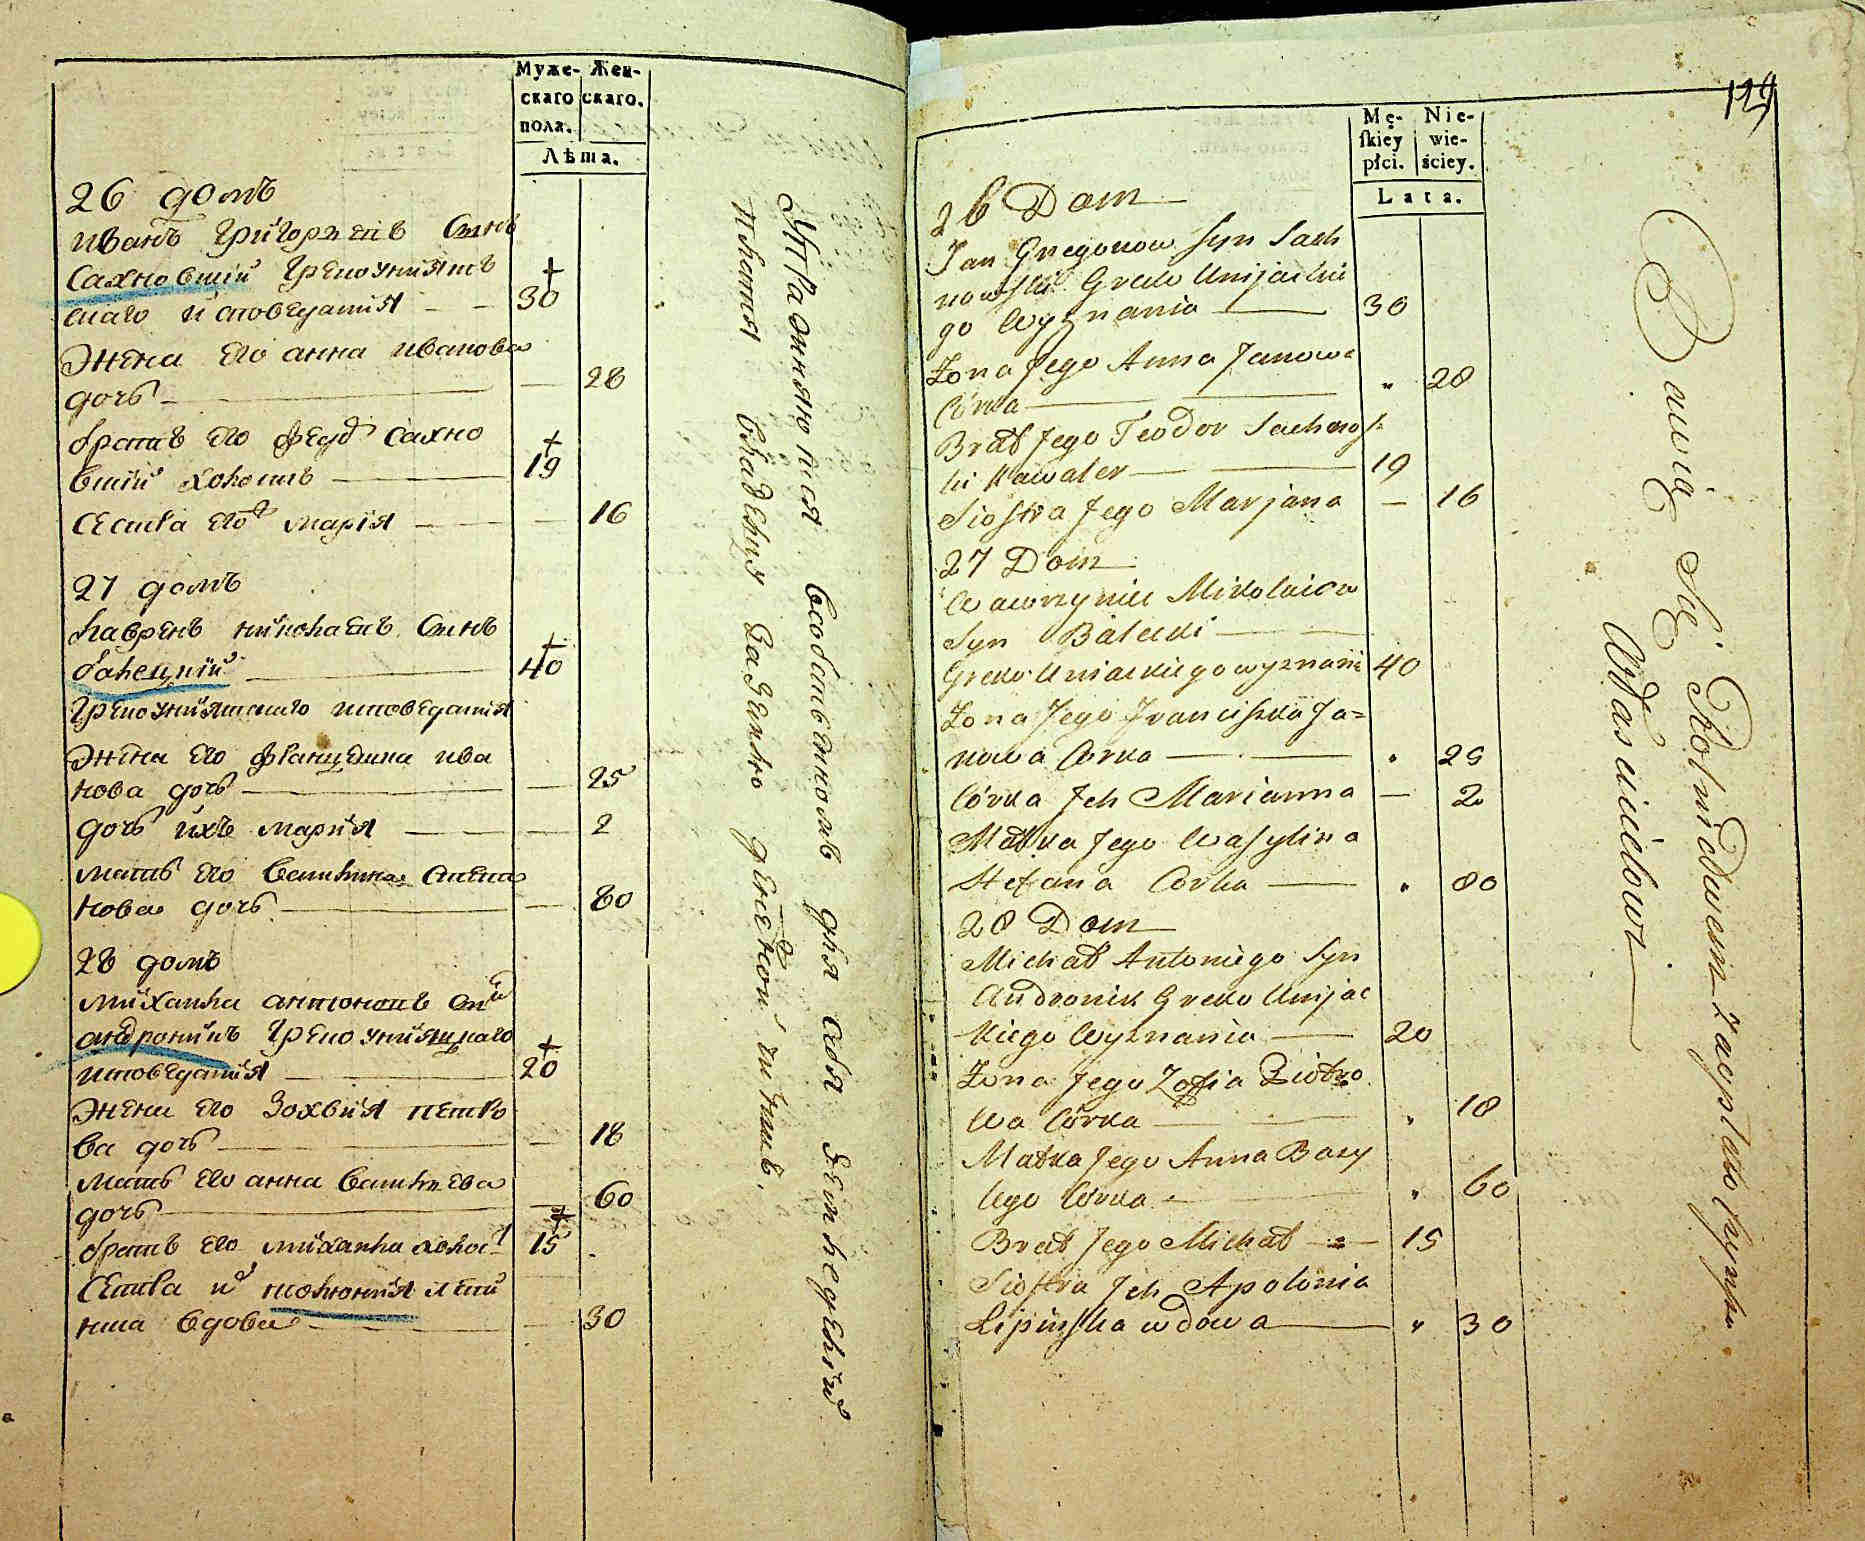 Муже-
скаго
пола.
Жен-
скаго.
Лѣта.
26 домъ
иванъ григориевъ синъ
Сахновский грекоуниятъ
скаго исповедания — 30
Жена его анна иванова
дочъ — 28
братъ его феуд Сахно
вский холостъ — 19
Сестра его мария — 16
27 домъ
лавренъ николаевъ Синъ
балецкий — 40
грекоуниятскаго исповедания
Жена его францишка ива
нова дочъ — 25
дочъ ихъ мария — 2
мать его василина Степа
нова дочъ — 80
28 домъ
михайла антоновъ син
андроникъ грекоунияцкаго
исповедания — 20
Жена его Зохвия петро
ва дочъ — 18
мать его анна василева
дочъ — 60
братъ его михайла холос 15
Сестра и
вдова — 30
Упражняются всобственномъ для себя земледелий
платя владельцу
129
Mę-
skiey
płci.
Nie-
wie-
ściey.
Lata.
26 Dom
Jan Gregorow Syn Sach
nowski Greko Unijackie
go Wyznania — 30
Żona Jego Anna Janowa
Córka — „ 28
Brat Jego Teodor Sachnows
ki Kawaler — 19
Siostra Jego Marjana — 16
27 Dom
Wawrzyniec Mikolaiow
Syn Balecki —
Greko Uniackiego wyznani 40
Żona Jego Franciszka Ja=
nowa Corka — „ 25
Córka Jch Marianna — 2
Matka Jego Wasylina
Stefana Corka — „ 80
28 Dom
Michał Antoniego Syn
Andronik Greko Unijac
kiego Wyznania — 20
Żona Jego Zofia Piotro
wa Córka — „ 18
Matka Jego Anna Bazy
lego Córka — „ 60
Brat Jego Michał — 15
Siostra Jch Apolonia
Lipińska wdowa — „ 30
Bawią Się Rolnictwem zapłato Czynszu
Właścicielowi